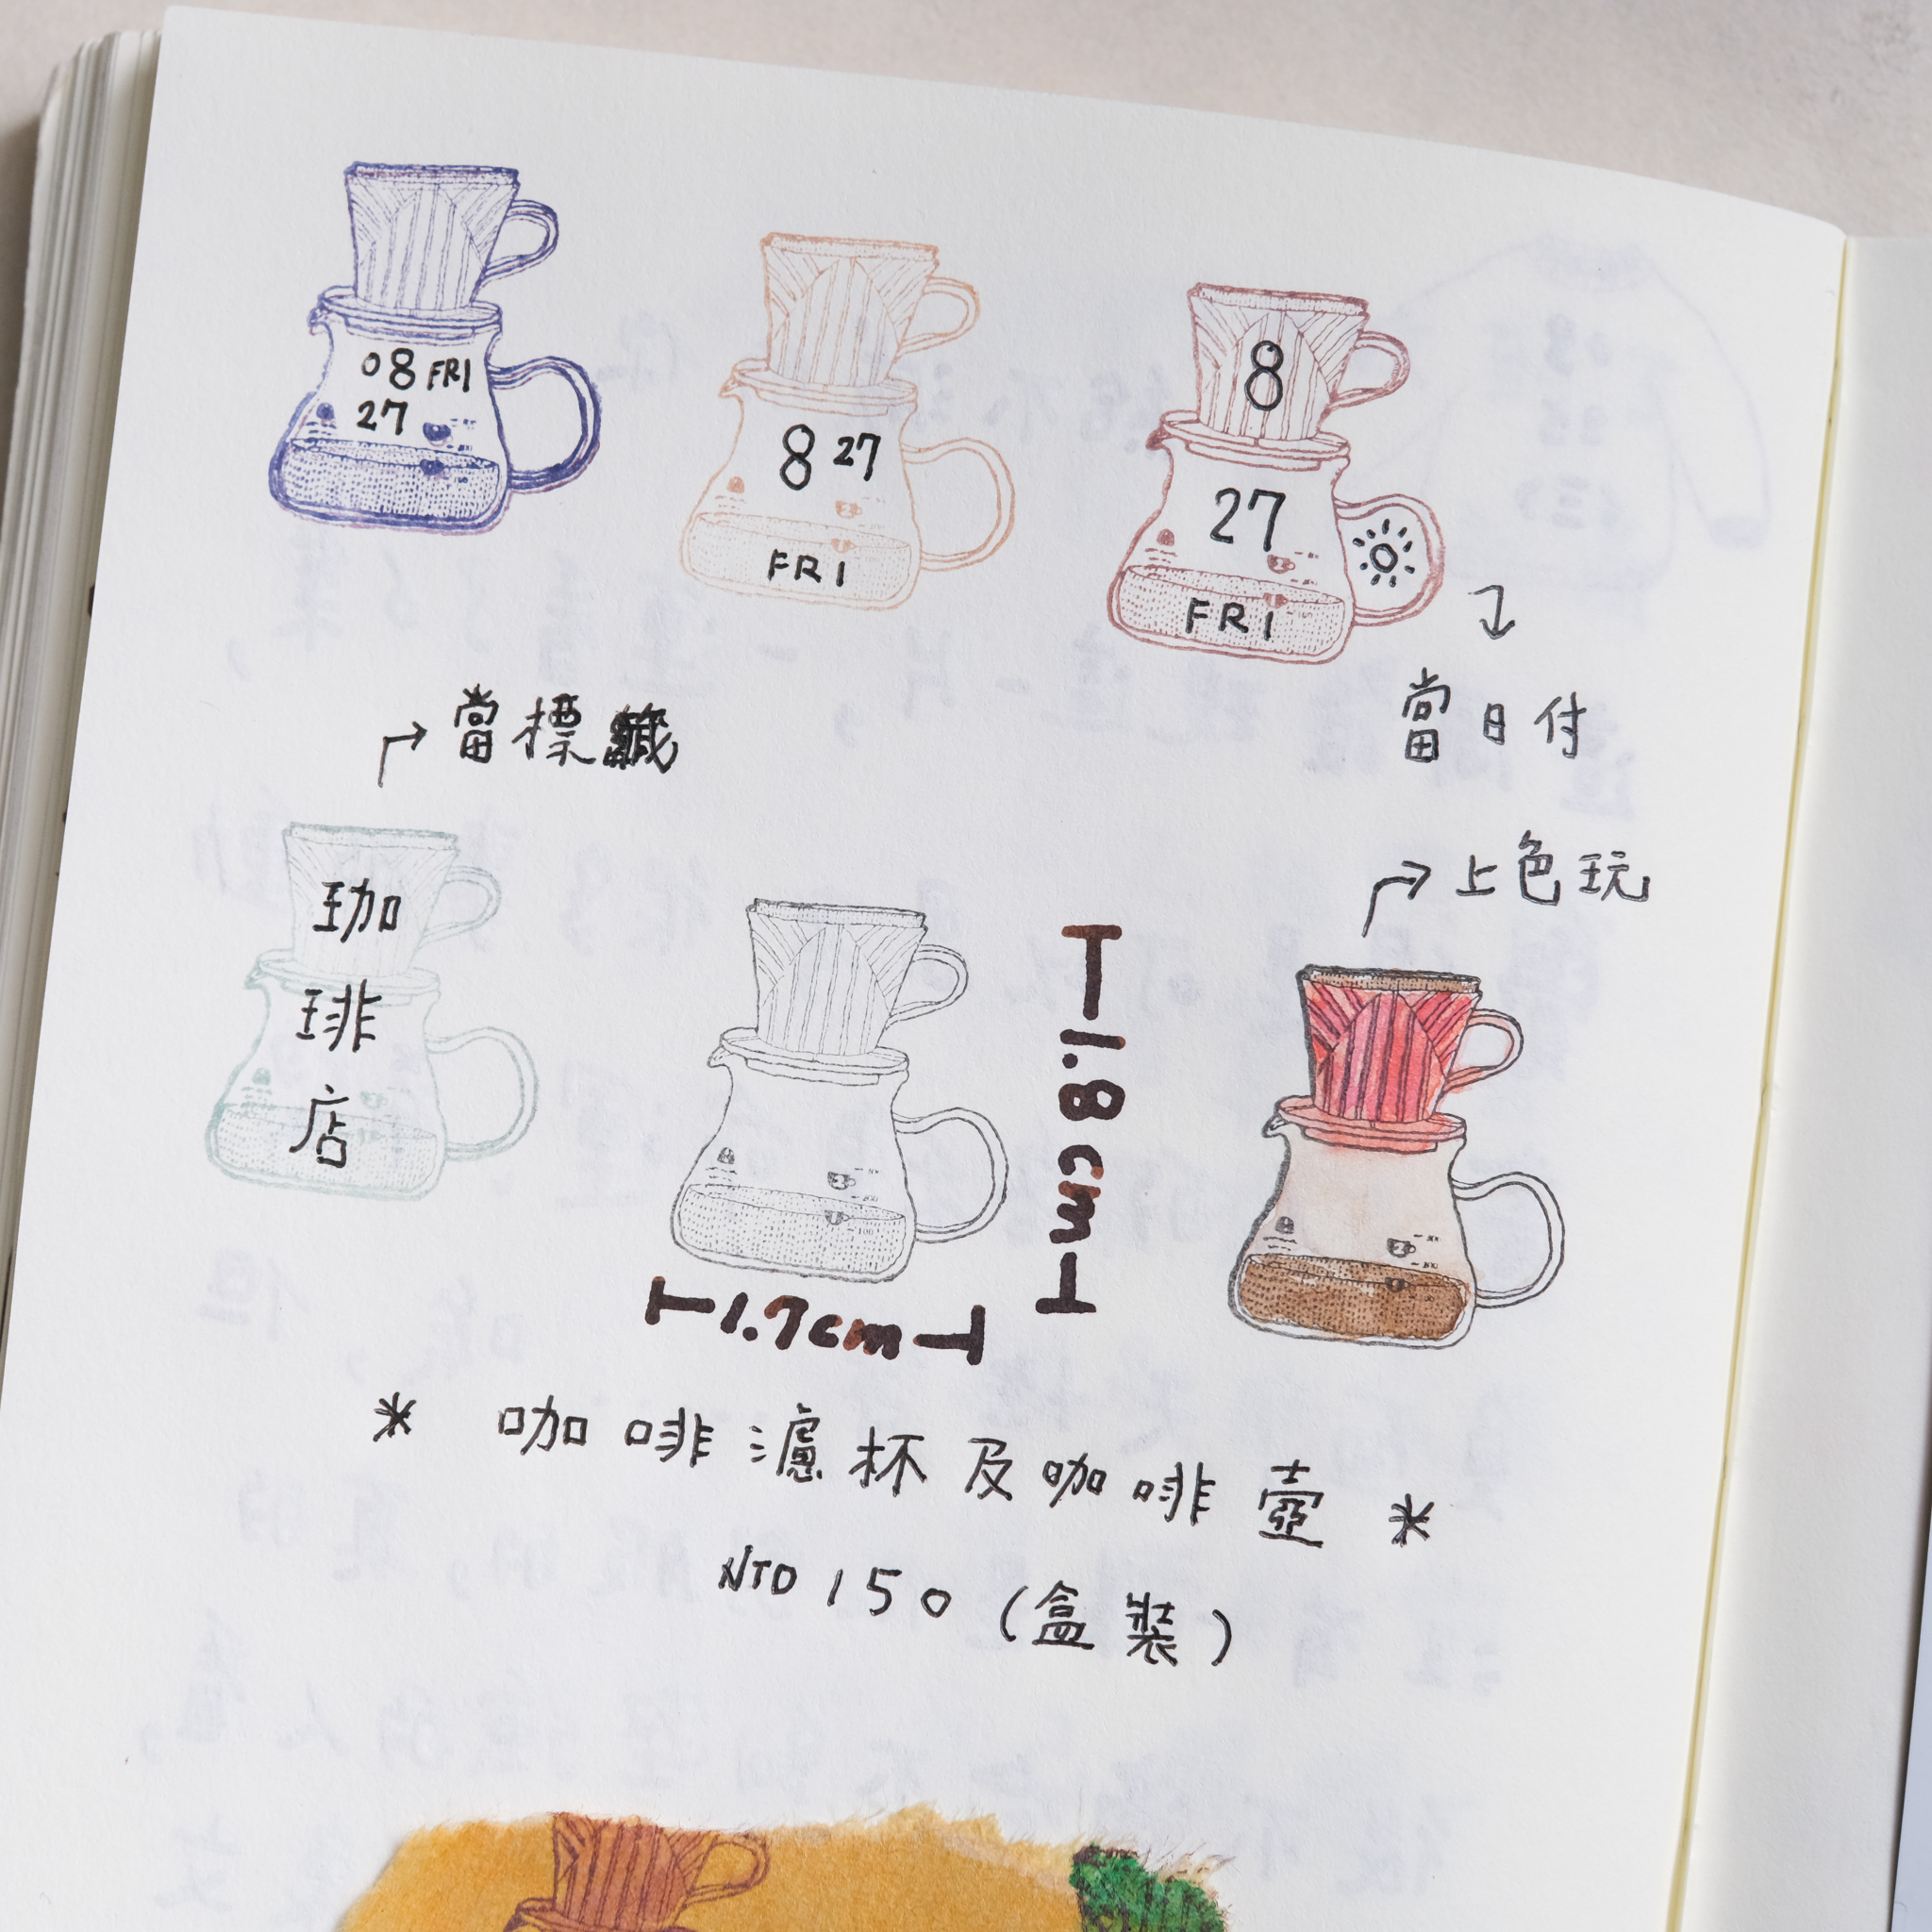 08 FRI
27
8 27
FRI
8
27
FRI
當日付
當標籤
上色玩
珈
琲
店
1.8cm
1.7cm
* 咖啡濾杯及咖啡壺 *
NTD 150 (盒裝)